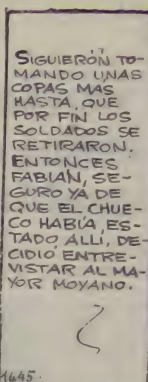 SIGUIERON TO-
MANDO UNAS
COPAS MAS
HASTA QUE
POR FIN LOS
SOLDADOS SE
RETIRARON.
ENTONCES
FABIAN, SE-
GURO YA DE
QUE EL CHUE-
CO HABÍA ES-
TADO ALLI, DE-
CIDIÓ ENTRE-
VISTAR AL MA-
YOR MOYANO.
1645